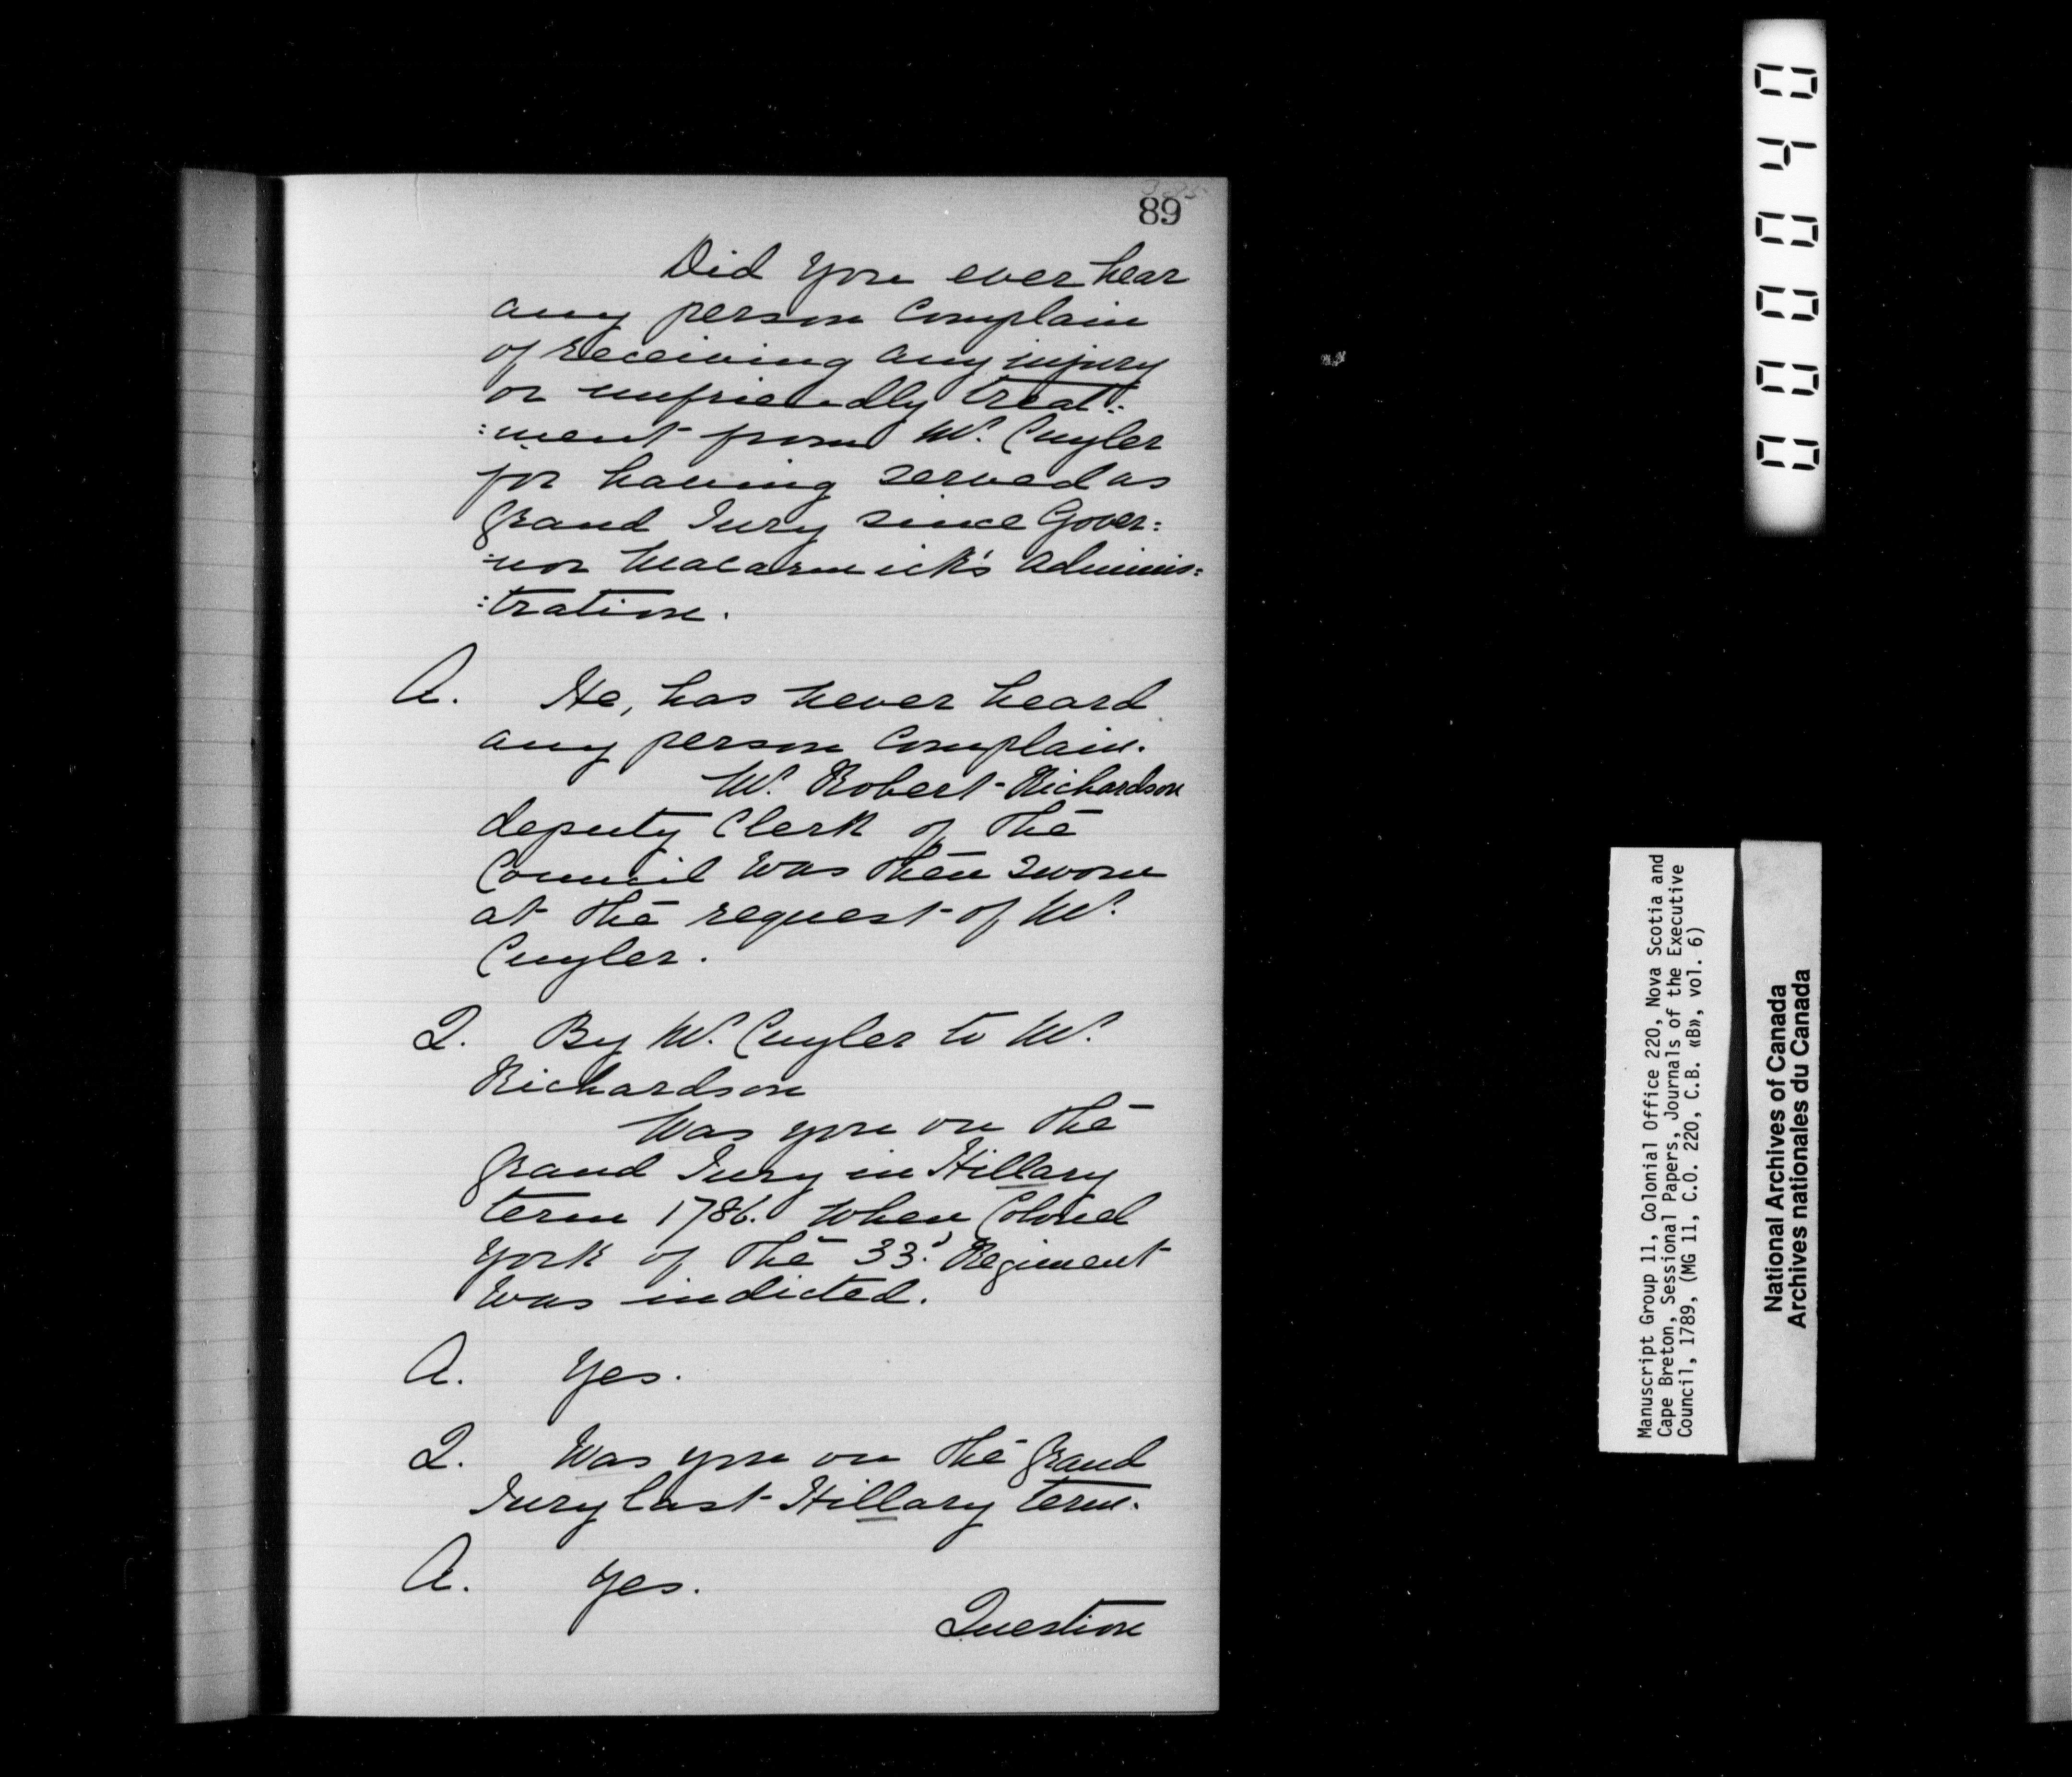 89
Did you ever hear
any person complain
of receiving any injury
or unfriendly treat:
:ment from Mr. Cuyler
for having served as
Grand Jury since Gover:
:nor Macarmick's adminis:
:tration.
A. He, has never heard
any person complain.
Mr. Robert Richardson
deputy Clerk of the
Council was then sworn
at the request of Mr.
Cuyler.
Q. By Mr. Cuyler to Mr.
Richardson
Was you on the
Grand Jury in Hillary
term 1786. when Colonel
York of the 33d. Regiment
was indicted.
A. Yes.
Q. Was you on the Grand
Jury last Hillary term.
A. Yes.
Question
000040
Manuscript Group 11, Colonial Office 220, Nova Scotia and
Cape Breton, Sessional Papers, Journals of the Executive
Council, 1789, (MG 11, C.O. 220, C.B. «B», vol. 6)
National Archives of Canada
Archives nationales du Canada